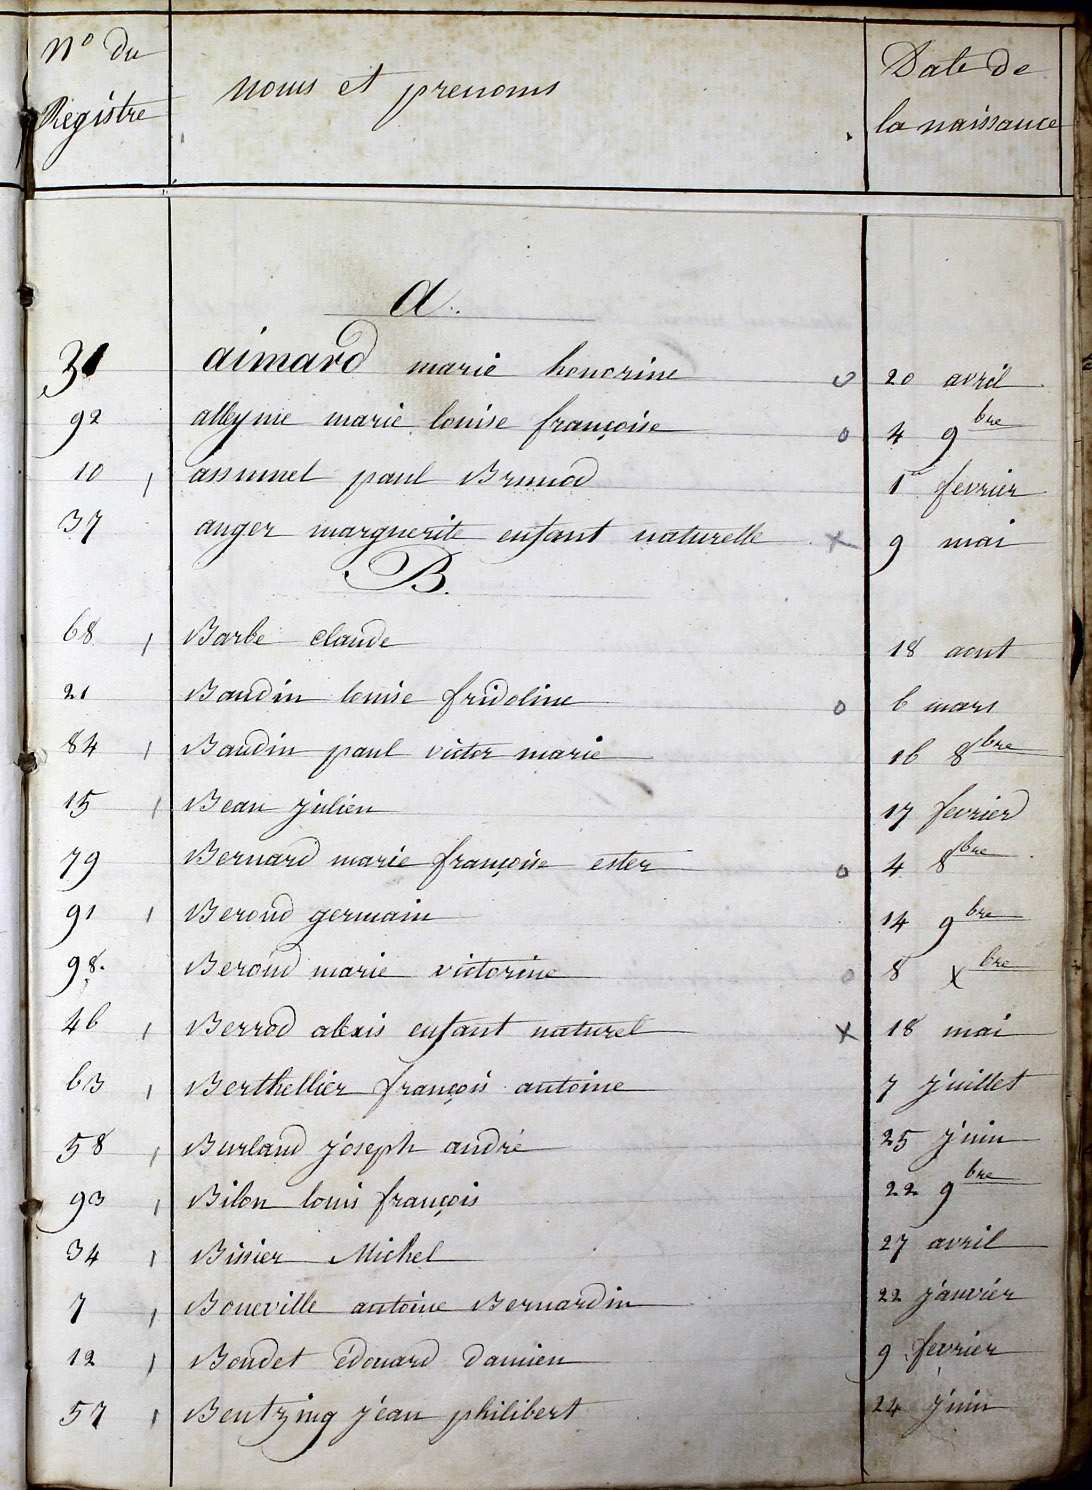 N° du Registre noms et prenoms Date de la naissance
a.
31 aimard marie honorine o 20 avril
92 alleynie marie louise françoise o 4 9bre
10 assumel paul Brunod 1er fevrier
37 anger marguerite enfant naturelle x 9 mai
B.
68 Barbe claude 18 aout
21 Baudin louise fridoline o 6 mars
84 Baudin paul victor marie 16 8bre
15 Beau julien 17 fevrier
79 Bernard marie françoise ester o 4 8bre
91 Beroud germain 14 9bre
98. Beroud marie victorine o 8 xbre
46 Berrod alexis enfant naturel x 18 mai
63 Berthellier françois antoine 7 juillet
58 Burland joseph andré 25 juin
93 Bilon louis françois 22 9bre
34 Bissier Michel 27 avril
7 Boneville antoine Bernardin 22 janvier
12 Boudet édouard Damien 9 fevrier
57 Beutzing jean philibert 24 juin